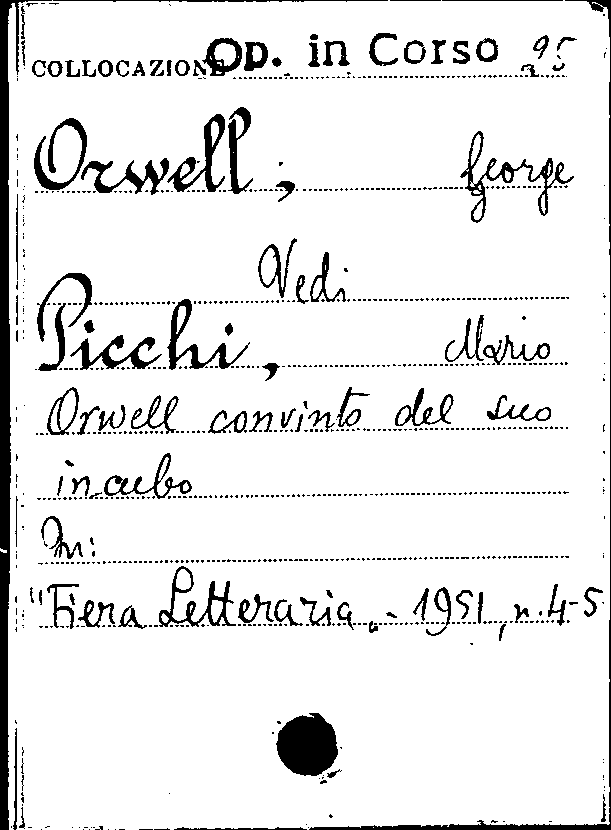 COLLOCAZIONE Op. in Corso 95
Orwell, George
Vedi
Picchi, Mario
Orwell convinto del suo
incubo
In:
"Fiera Letteraria„ - 1951, n. 4-5